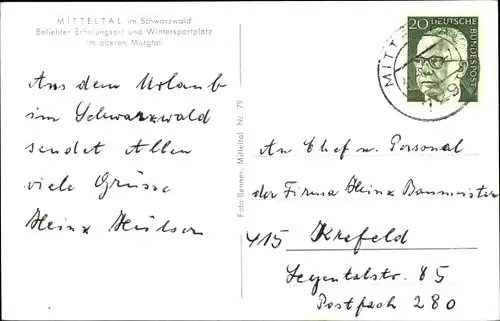 MITTELTAL im Schwarzwald
Beliebter Erholungsort und Wintersportplatz
im oberen Murgtal
Aus dem Urlaub
im Schwarzwald
sendet Allen
viele Grüsse
Heinz
Foto-Benner, Mitteltal Nr. 79
20 DEUTSCHE
BUNDESPOST
MITT
An Chef u. Personal
der Firma Heinz Baumeister
415 Krefeld
Segentalstr. 85
Postfach 280